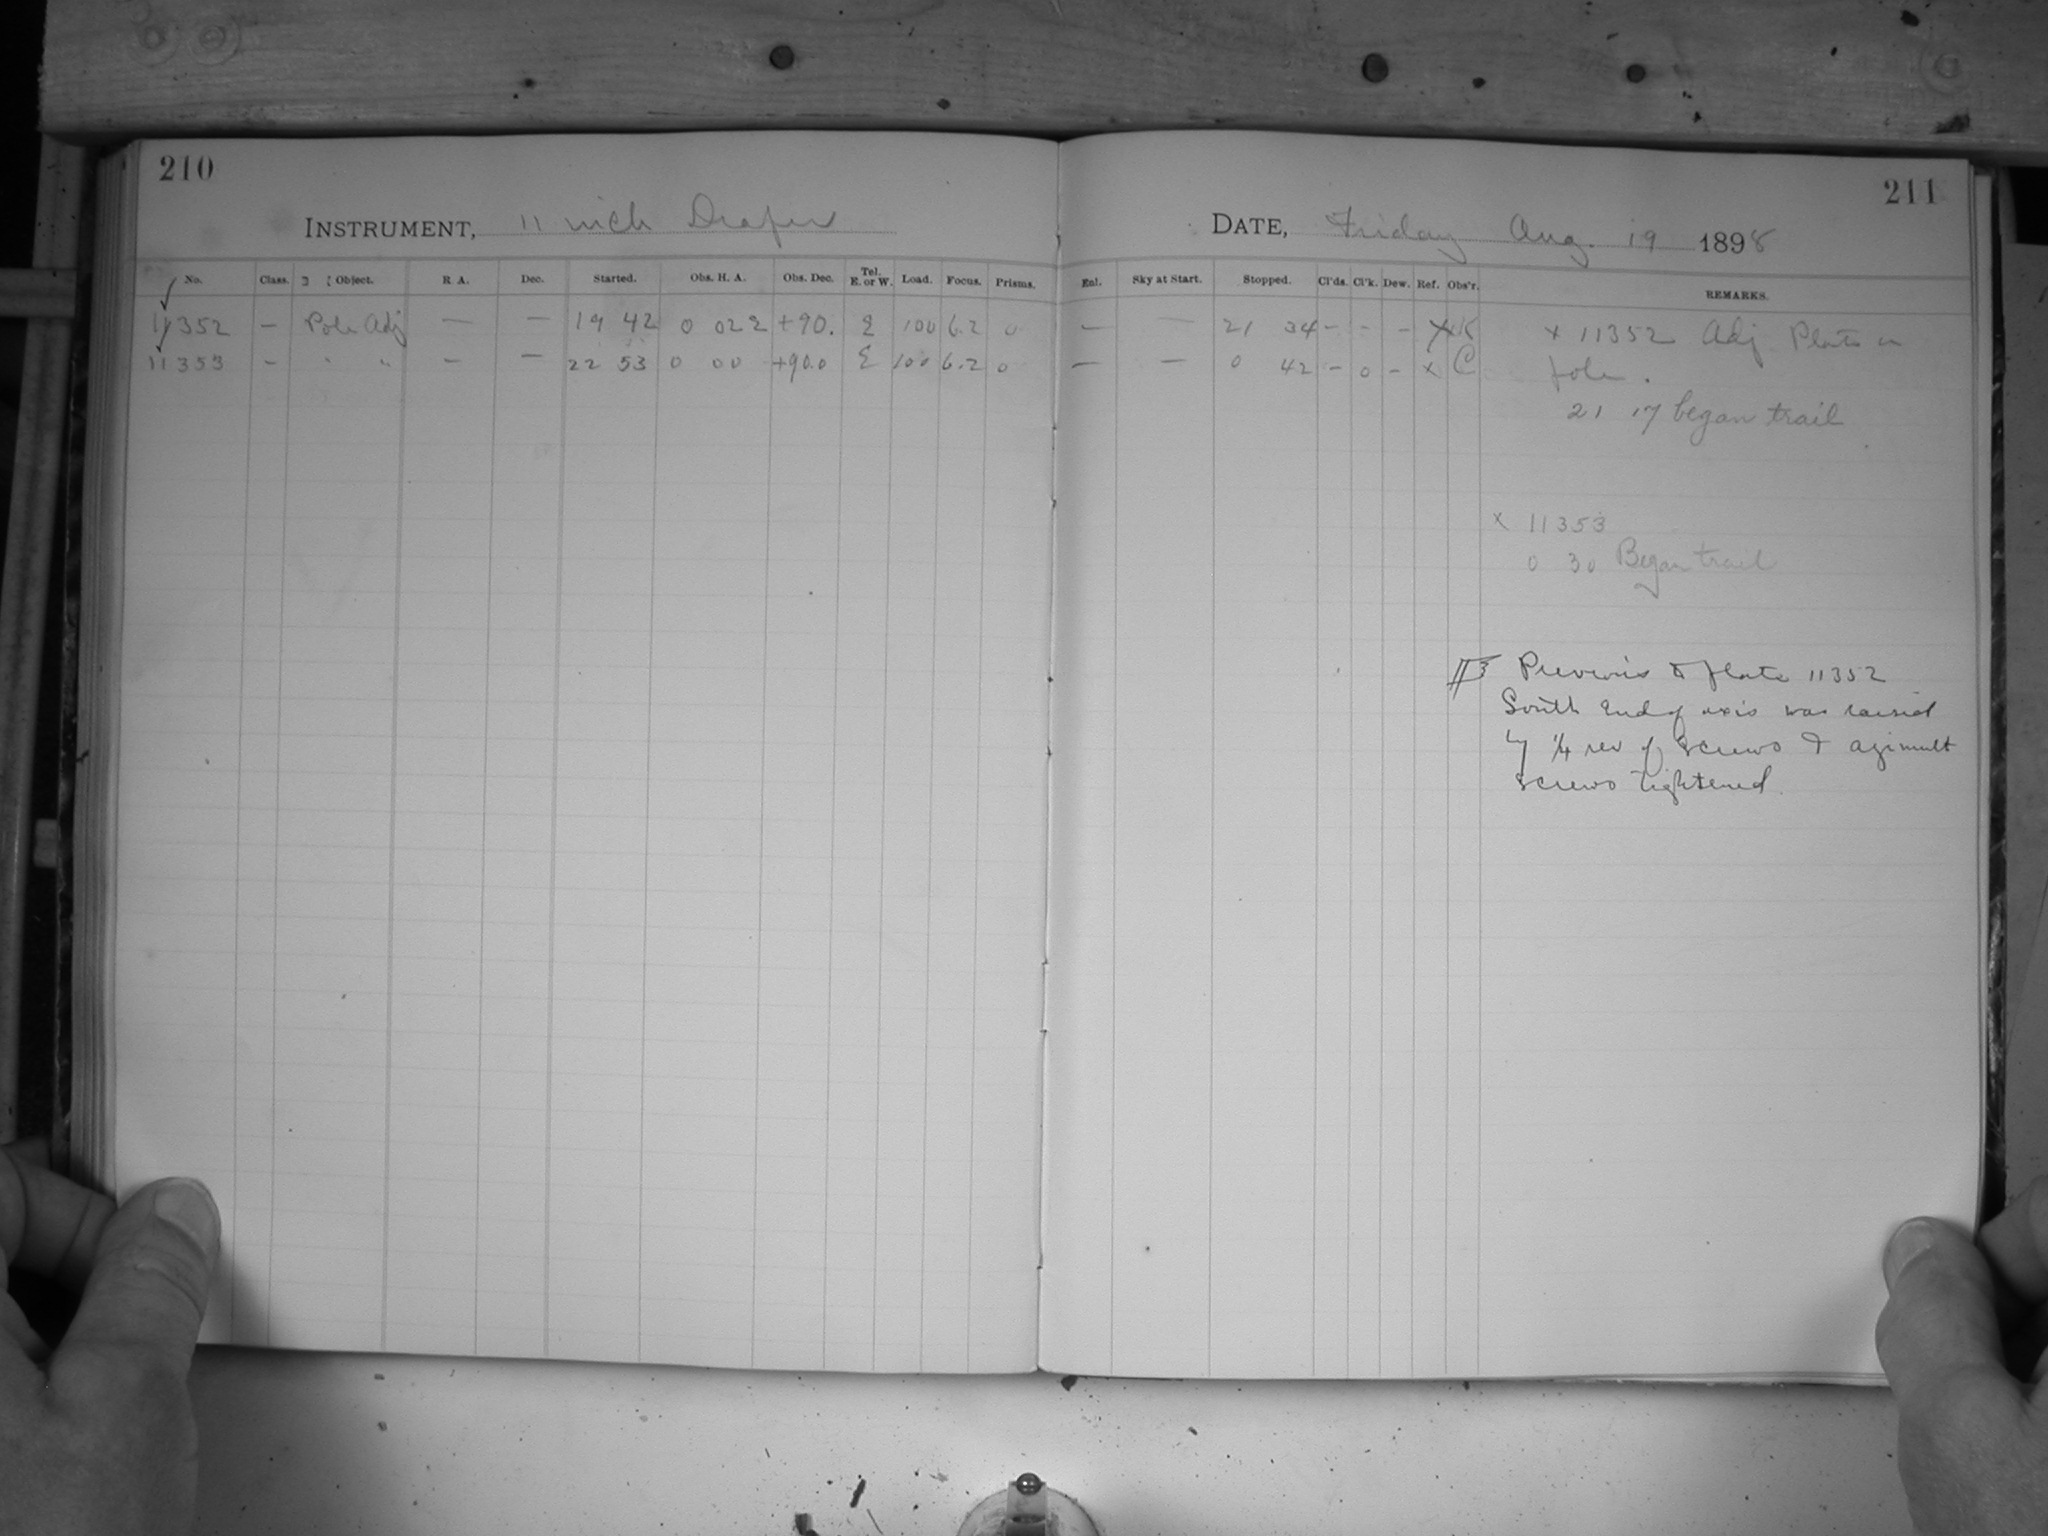 210
INSTRUMENT, 11 inch Draper
No. Class. Object. R. A. Dec. Started. Obs. H. A. Obs. Dec. Tel. E. or W. Load. Focus. Prisms.
11352 — Pole Adj — — 19 42 0 02 2 +90. E 100 6.2 0
11353 — " " — — 22 53 0 00 +90.0 E 100 6.2 0
211
DATE, Friday Aug. 19 1898
Enl. Sky at Start. Stopped. Cl'ds. Cl'k. Dew. Ref. Obs'r. REMARKS.
— — 21 34 - - - X K x 11352 Adj Plate on
— — 0 42 - 0 - x C pole.
21 17 began trail
x 11353
0 30 Began trail
Previous to plate 11352
South end of axis was raised
by 1/4 rev of screws & azimuth
screws tightened.